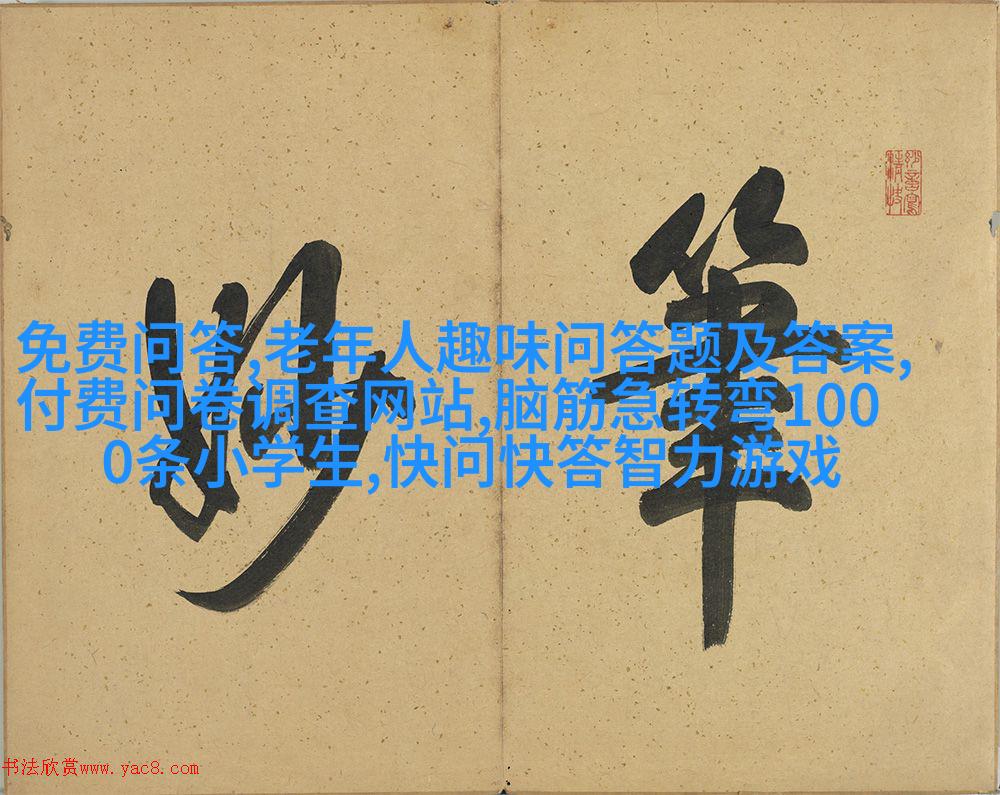 筆
妙
免费问答,老年人趣味问答题及答案,
付费问卷调查网站,脑筋急转弯100
0条小学生,快问快答智力游戏
书法欣赏www.yac8.com